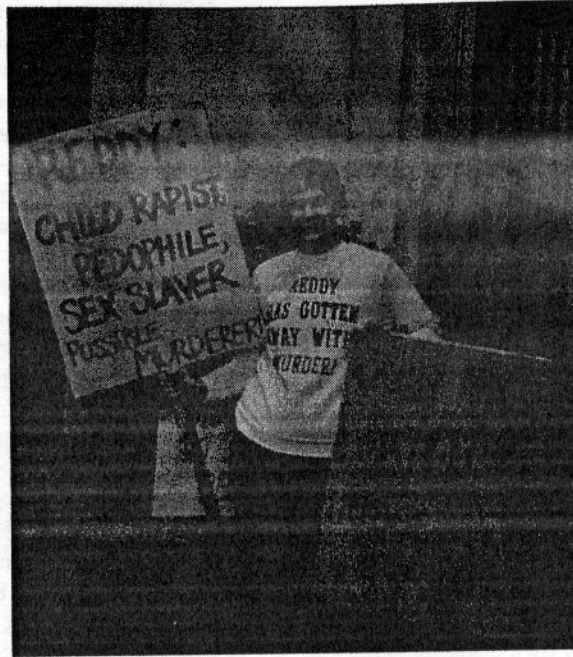 REDDY:
CHILD RAPIST,
PEDOPHILE,
SEX SLAVER
POSSIBLE
MURDERER!
REDDY
HAS GOTTEN
AWAY WITH
MURDER!